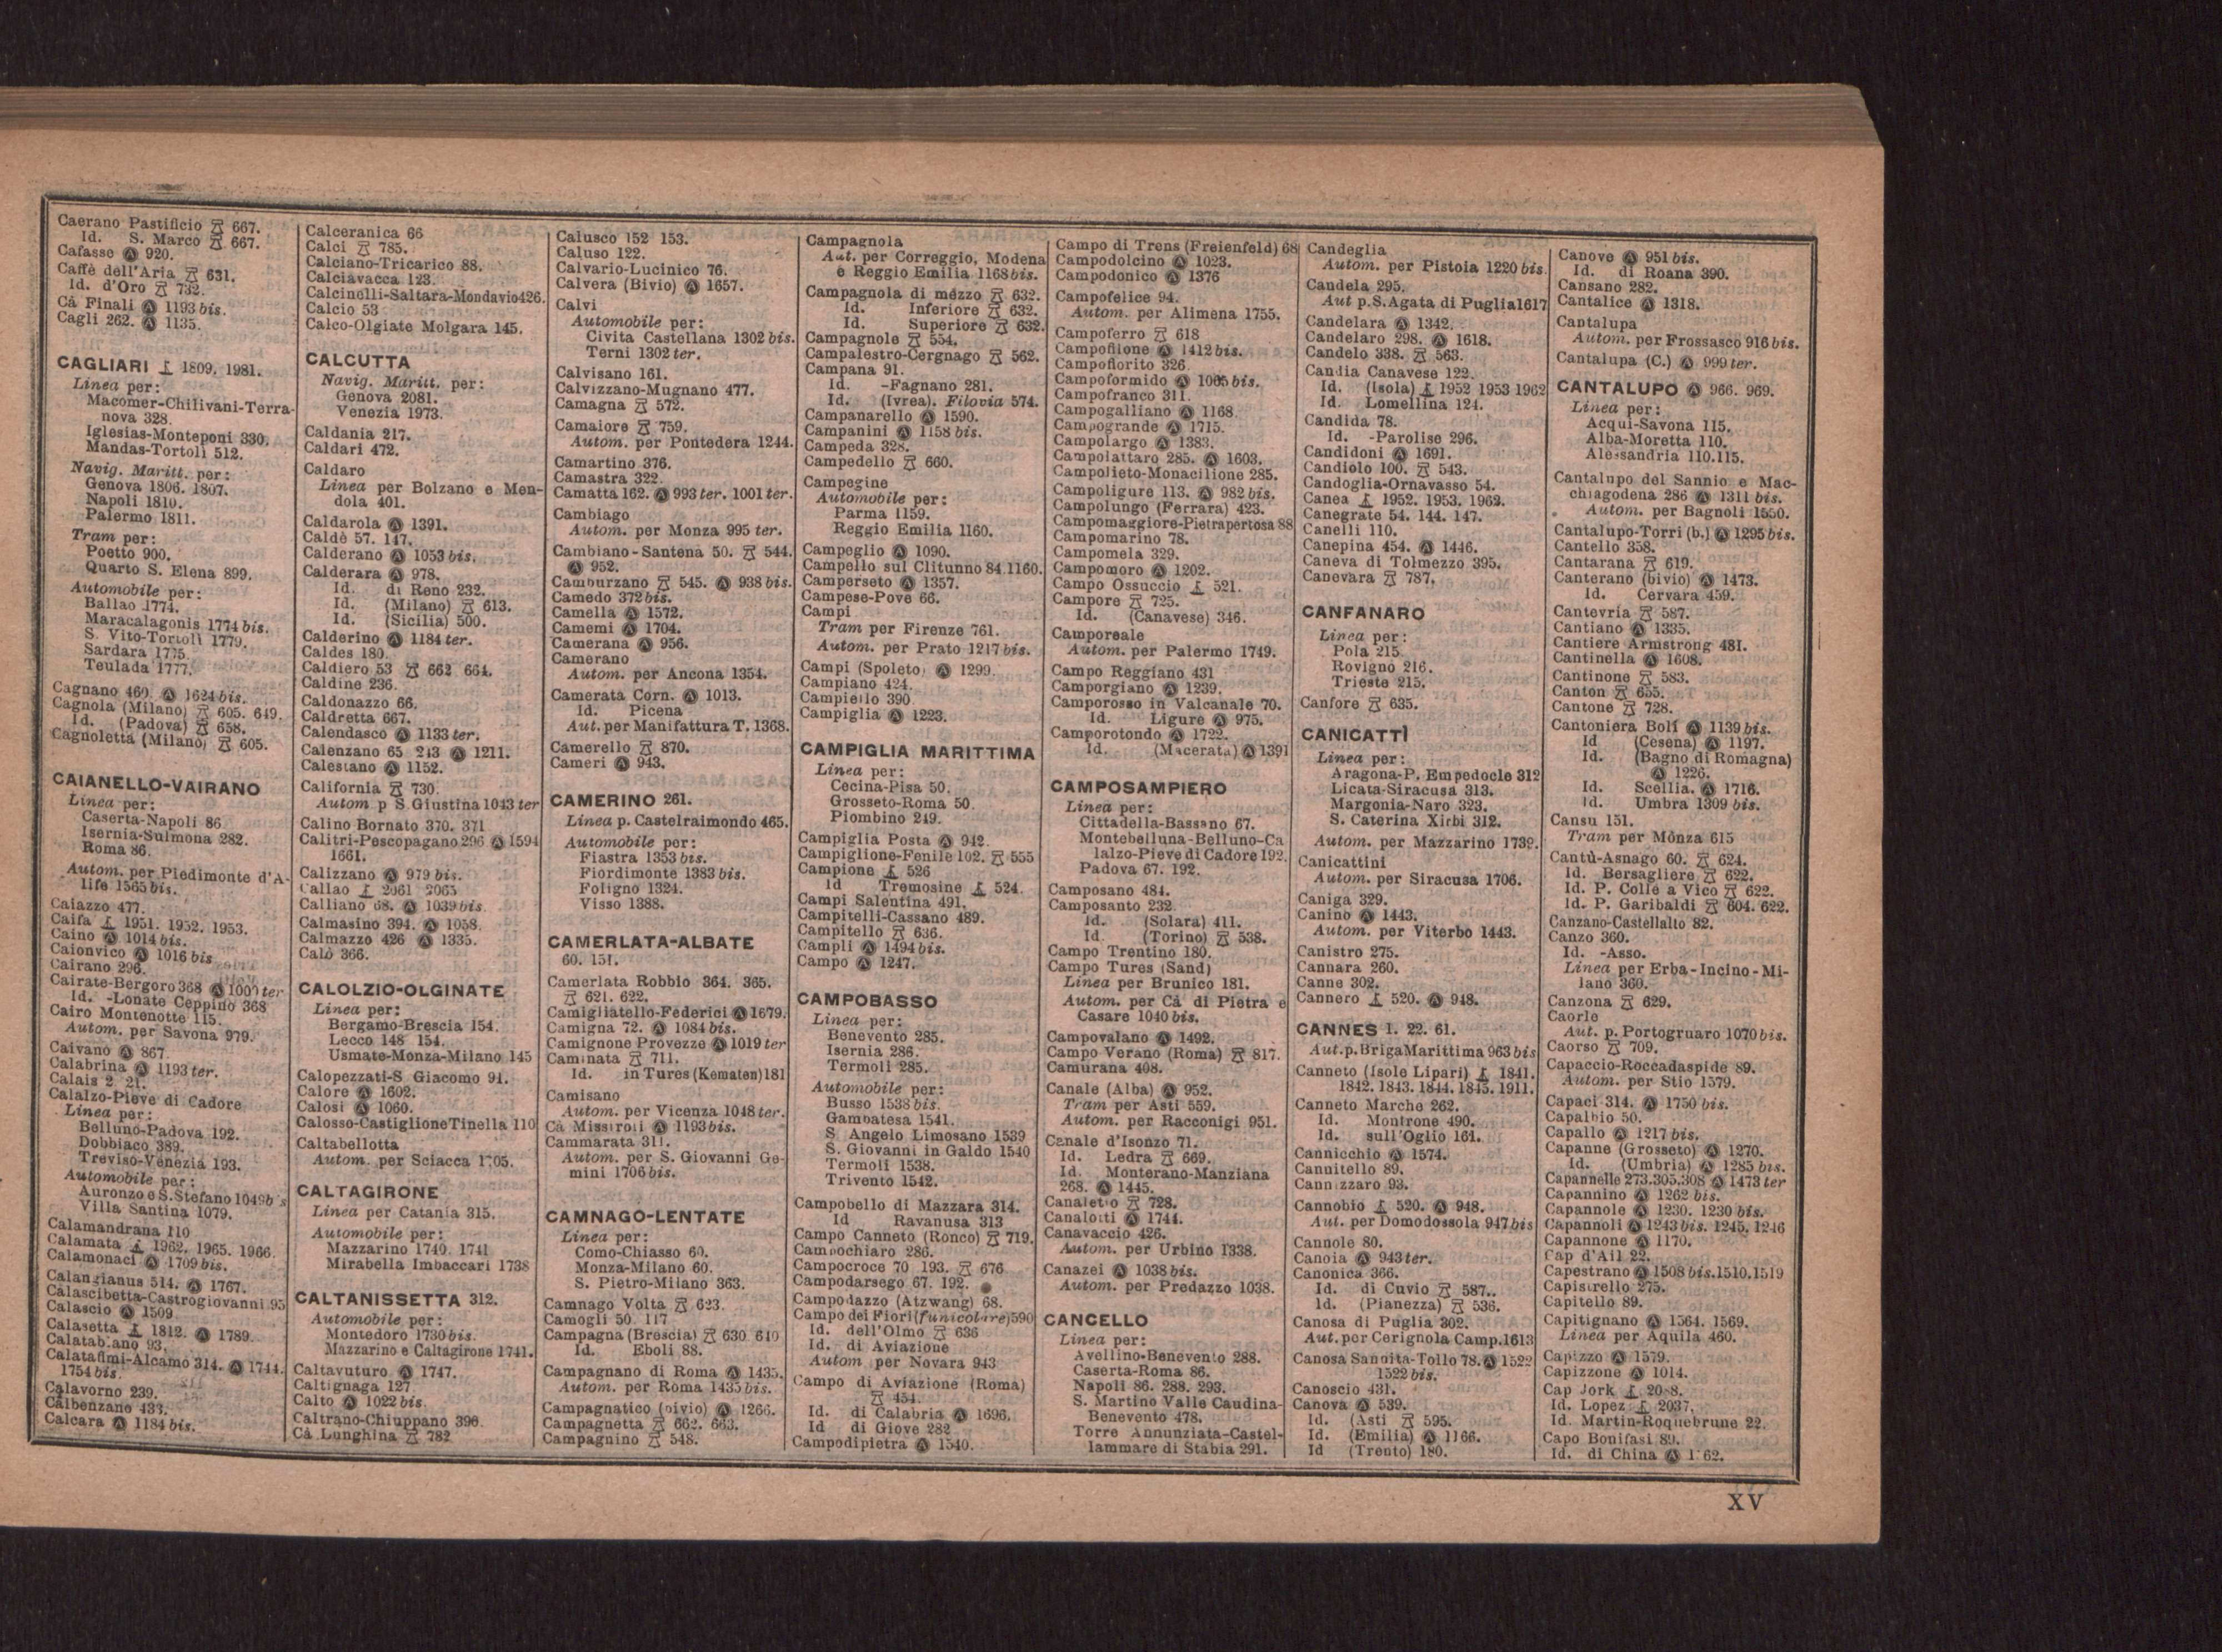 Caerano Pastificio 667.
Id. S. Marco 667.
Cafasse Ⓐ 920.
Caffè dell'Aria 631.
Id. d'Oro 732.
Cà Finali Ⓐ 1193 bis.
Cagli 262. Ⓐ 1135.
CAGLIARI 1809. 1981.
Linea per:
Macomer-Chilivani-Terra-
nova 328.
Iglesias-Monteponi 330.
Mandas-Tortolì 512.
Navig. Maritt. per:
Genova 1806. 1807.
Napoli 1810.
Palermo 1811.
Tram per:
Poetto 900.
Quarto S. Elena 899.
Automobile per:
Ballao 1774.
Maracalagonis 1774 bis.
S. Vito-Tortolì 1779.
Sardara 1775.
Teulada 1777.
Cagnano 460. Ⓐ 1624 bis.
Cagnola (Milano) 605. 649.
Id. (Padova) 658.
Cagnoletta (Milano) 605.
CAIANELLO-VAIRANO
Linea per:
Caserta-Napoli 86
Isernia-Sulmona 282.
Roma 86.
Autom. per Piedimonte d'A-
life 1565 bis.
Caiazzo 477.
Caifa 1951. 1952. 1953.
Caino Ⓐ 1014 bis.
Caionvico Ⓐ 1016 bis
Cairano 296.
Cairate-Bergoro 368 Ⓐ 1000 ter
Id. -Lonate Ceppino 368
Cairo Montenotte 115.
Autom. per Savona 979.
Caivano Ⓐ 867.
Calabrina Ⓐ 1193 ter.
Calais 2 21.
Calalzo-Pieve di Cadore
Linea per:
Belluno-Padova 192.
Dobbiaco 389.
Treviso-Venezia 193.
Automobile per:
Auronzo e S. Stefano 1049 b s
Villa Santina 1079.
Calamandrana 110
Calamata 1962. 1965. 1966.
Calamonaci Ⓐ 1709 bis.
Calangianus 514. Ⓐ 1767.
Calascibetta-Castrogiovanni 95
Calascio Ⓐ 1509
Calasetta 1812. Ⓐ 1789.
Calatabiano 93.
Calatafimi-Alcamo 314. Ⓐ 1744.
1754 bis.
Calavorno 239.
Calbenzano 433.
Calcara Ⓐ 1184 bis.
Calceranica 66
Calci 785.
Calciano-Tricarico 88.
Calciavacca 123.
Calcinelli-Saltara-Mondavio 426.
Calcio 53
Calco-Olgiate Molgara 145.
CALCUTTA
Navig. Maritt. per:
Genova 2081.
Venezia 1973.
Caldania 217.
Caldari 472.
Caldaro
Linea per Bolzano e Men-
dola 401.
Caldarola Ⓐ 1391.
Caldè 57. 147.
Calderano Ⓐ 1053 bis.
Calderara Ⓐ 978.
Id. di Reno 232.
Id. (Milano) 613.
Id. (Sicilia) 500.
Calderino Ⓐ 1184 ter.
Caldes 180.
Caldiero 53 662 664.
Caldine 236.
Caldonazzo 66.
Caldretta 667.
Calendasco Ⓐ 1133 ter.
Calenzano 65 243 Ⓐ 1211.
Calestano Ⓐ 1152.
California 730.
Autom p S. Giustina 1043 ter
Calino Bornato 370. 371
Calitri-Pescopagano 296 Ⓐ 1594
1661.
Calizzano Ⓐ 979 bis.
Callao 2061 2065
Calliano 68. Ⓐ 1039 bis
Calmasino 394. Ⓐ 1058.
Calmazzo 426 Ⓐ 1335.
Calò 366.
CALOLZIO-OLGINATE
Linea per:
Bergamo-Brescia 154.
Lecco 148 154.
Usmate-Monza-Milano 145
Calopezzati-S Giacomo 91.
Calore Ⓐ 1602.
Calosi Ⓐ 1060.
Calosso-Castiglione Tinella 110
Caltabellotta
Autom. per Sciacca 1705.
CALTAGIRONE
Linea per Catania 315.
Automobile per:
Mazzarino 1740. 1741
Mirabella Imbaccari 1738
CALTANISSETTA 312.
Automobile per:
Montedoro 1730 bis.
Mazzarino e Caltagirone 1741.
Caltavuturo Ⓐ 1747.
Caltignaga 127
Calto Ⓐ 1022 bis.
Caltrano-Chiuppano 396.
Cà Lunghina 782
Calusco 152 153.
Caluso 122.
Calvario-Lucinico 76.
Calvera (Bivio) Ⓐ 1657.
Calvi
Automobile per:
Civita Castellana 1302 bis.
Terni 1302 ter.
Calvisano 161.
Calvizzano-Mugnano 477.
Camagna 572.
Camaiore 759.
Autom. per Pontedera 1244.
Camartino 376.
Camastra 322.
Camatta 162. Ⓐ 993 ter. 1001 ter.
Cambiago
Autom. per Monza 995 ter.
Cambiano-Santena 50. 544.
Ⓐ 952.
Camburzano 545. Ⓐ 938 bis.
Camedo 372 bis.
Camella Ⓐ 1572.
Camemi Ⓐ 1704.
Camerana Ⓐ 956.
Camerano
Autom. per Ancona 1354.
Camerata Corn. Ⓐ 1013.
Id. Picena
Aut. per Manifattura T. 1368.
Camerello 870.
Cameri Ⓐ 943.
CAMERINO 261.
Linea p. Castelraimondo 465.
Automobile per:
Fiastra 1353 bis.
Fiordimonte 1383 bis.
Foligno 1324.
Visso 1388.
CAMERLATA-ALBATE
60. 151.
Camerlata Robbio 364. 365.
621. 622.
Camigliatello-Federici Ⓐ 1679.
Camigna 72. Ⓐ 1084 bis.
Camignone Provezze Ⓐ 1019 ter
Caminata 711.
Id. in Tures (Kematen) 181
Camisano
Autom. per Vicenza 1048 ter.
Cà Missiroli Ⓐ 1193 bis.
Cammarata 311.
Autom. per S. Giovanni Ge-
mini 1706 bis.
CAMNAGO-LENTATE
Linea per:
Como-Chiasso 60.
Monza-Milano 60.
S. Pietro-Milano 363.
Camnago Volta 623.
Camogli 50 117
Campagna (Brescia) 630 640
Id. Eboli 88.
Campagnano di Roma Ⓐ 1435.
Autom. per Roma 1435 bis.
Campagnatico (bivio) Ⓐ 1266.
Campagnetta 662. 663.
Campagnino 548.
Campagnola
Aut. per Correggio, Modena
e Reggio Emilia 1168 bis.
Campagnola di mezzo 632.
Id. Inferiore 632.
Id. Superiore 632.
Campagnole 554.
Campalestro-Cergnago 562.
Campana 91.
Id. -Fagnano 281.
Id. (Ivrea). Filovia 574.
Campanarello Ⓐ 1590.
Campanini Ⓐ 1158 bis.
Campeda 328.
Campedello 660.
Campegine
Automobile per:
Parma 1159.
Reggio Emilia 1160.
Campeglio Ⓐ 1090.
Campello sul Clitunno 84. 1160.
Camperseto Ⓐ 1357.
Campese-Pove 66.
Campi
Tram per Firenze 761.
Autom. per Prato 1217 bis.
Campi (Spoleto) Ⓐ 1299.
Campiano 424.
Campiello 390
Campiglia Ⓐ 1223.
CAMPIGLIA MARITTIMA
Linea per:
Cecina-Pisa 50.
Grosseto-Roma 50.
Piombino 249.
Campiglia Posta Ⓐ 942.
Campiglione-Fenile 102. 555
Campione 526
Id Tremosine 524.
Campi Salentina 491.
Campitelli-Cassano 489.
Campitello 636.
Campli Ⓐ 1494 bis.
Campo Ⓐ 1247.
CAMPOBASSO
Linea per:
Benevento 285.
Isernia 286.
Termoli 285.
Automobile per:
Busso 1538 bis.
Gambatesa 1541.
S Angelo Limosano 1539
S. Giovanni in Galdo 1540
Termoli 1538.
Trivento 1542.
Campobello di Mazzara 314.
Id Ravanusa 313
Campo Canneto (Ronco) 719.
Campochiaro 286.
Campocroce 70 193. 676
Campodarsego 67. 192.
Campodazzo (Atzwang) 68.
Campo dei Fiori (funicolare) 590
Id. dell'Olmo 636
Id. di Aviazione
Autom per Novara 943
Campo di Aviazione (Roma)
454.
Id. di Calabria Ⓐ 1696.
Id di Giove 282
Campodipietra Ⓐ 1540.
Campo di Trens (Freienfeld) 68
Campodolcino Ⓐ 1023.
Campodonico Ⓐ 1376
Campofelice 94.
Autom. per Alimena 1755.
Campoferro 618
Campofilone Ⓐ 1412 bis.
Campofiorito 326.
Campoformido Ⓐ 1065 bis.
Campofranco 311.
Campogalliano Ⓐ 1168.
Campogrande Ⓐ 1715.
Campolargo Ⓐ 1383.
Campolattaro 285. Ⓐ 1603.
Campolieto-Monacilione 285.
Campoligure 113. Ⓐ 982 bis.
Campolungo (Ferrara) 423.
Campomaggiore-Pietrapertosa 88
Campomarino 78.
Campomela 329.
Campomoro Ⓐ 1202.
Campo Ossuccio 521.
Campore 725.
Id. (Canavese) 346.
Camporeale
Autom. per Palermo 1749.
Campo Reggiano 431
Camporgiano Ⓐ 1239.
Camporosso in Valcanale 70.
Id. Ligure Ⓐ 975.
Camporotondo Ⓐ 1722.
Id. (Macerata) Ⓐ 1391
CAMPOSAMPIERO
Linea per:
Cittadella-Bassano 67.
Montebelluna-Belluno-Ca
lalzo-Pieve di Cadore 192.
Padova 67. 192.
Camposano 484.
Camposanto 232
Id. (Solara) 411.
Id. (Torino) 538.
Campo Trentino 180.
Campo Tures (Sand)
Linea per Brunico 181.
Autom. per Cà di Pietra e
Casare 1040 bis.
Campovalano Ⓐ 1492.
Campo Verano (Roma) 817.
Camurana 408.
Canale (Alba) Ⓐ 952.
Tram per Asti 559.
Autom. per Racconigi 951.
Canale d'Isonzo 71.
Id. Ledra 669.
Id. Monterano-Manziana
268. Ⓐ 1445.
Canaletto 728.
Canalotti Ⓐ 1744.
Canavaccio 426.
Autom. per Urbino 1338.
Canazei Ⓐ 1038 bis.
Autom. per Predazzo 1038.
CANCELLO
Linea per:
Avellino-Benevento 288.
Caserta-Roma 86.
Napoli 86. 288. 293.
S. Martino Valle Caudina-
Benevento 478.
Torre Annunziata-Castel-
lammare di Stabia 291.
Candeglia
Autom. per Pistoia 1220 bis.
Candela 295.
Aut p. S. Agata di Puglia 1617
Candelara Ⓐ 1342.
Candelaro 298. Ⓐ 1618.
Candelo 338. 563.
Candia Canavese 122.
Id. (Isola) 1952 1953 1962
Id. Lomellina 124.
Candida 78.
Id. -Parolise 296.
Candidoni Ⓐ 1691.
Candiolo 100. 543.
Candoglia-Ornavasso 54.
Canea 1952. 1953. 1962.
Canegrate 54. 144. 147.
Canelli 110.
Canepina 454. Ⓐ 1446.
Caneva di Tolmezzo 395.
Canevara 787.
CANFANARO
Linea per:
Pola 215
Rovigno 216.
Trieste 215.
Canfore 635.
CANICATTÌ
Linea per:
Aragona-P. Empedocle 312
Licata-Siracusa 313.
Margonia-Naro 323.
S. Caterina Xirbi 312.
Autom. per Mazzarino 1739.
Canicattini
Autom. per Siracusa 1706.
Caniga 329.
Canino Ⓐ 1443.
Autom. per Viterbo 1443.
Canistro 275.
Cannara 260.
Canne 302.
Cannero 520. Ⓐ 948.
CANNES 1. 22. 61.
Aut. p. Briga Marittima 963 bis
Canneto (Isole Lipari) 1841.
1842. 1843. 1844. 1845. 1911.
Canneto Marche 262.
Id. Montrone 490.
Id. sull'Oglio 161.
Cannicchio Ⓐ 1574.
Cannitello 89.
Cannizzaro 93.
Cannobio 520. Ⓐ 948.
Aut. per Domodossola 947 bis
Cannole 80.
Canoia Ⓐ 943 ter.
Canonica 366.
Id. di Cuvio 587..
Id. (Pianezza) 536.
Canosa di Puglia 302.
Aut. per Cerignola Camp. 1613
Canosa Sannita-Tollo 78. Ⓐ 1522
1522 bis.
Canoscio 431.
Canova Ⓐ 539.
Id. (Asti 595.
Id. (Emilia) Ⓐ 1166.
Id (Trento) 180.
Canove Ⓐ 951 bis.
Id. di Roana 390.
Cansano 282.
Cantalice Ⓐ 1318.
Cantalupa
Autom. per Frossasco 916 bis.
Cantalupa (C.) Ⓐ 999 ter.
CANTALUPO Ⓐ 966. 969.
Linea per:
Acqui-Savona 115.
Alba-Moretta 110.
Alessandria 110.115.
Cantalupo del Sannio e Mac-
chiagodena 286 Ⓐ 1311 bis.
Autom. per Bagnoli 1550.
Cantalupo-Torri (b.) Ⓐ 1295 bis.
Cantello 358.
Cantarana 619.
Canterano (bivio) Ⓐ 1473.
Id. Cervara 459.
Cantevria 587.
Cantiano Ⓐ 1335.
Cantiere Armstrong 481.
Cantinella Ⓐ 1608.
Cantinone 583.
Canton 655.
Cantone 728.
Cantoniera Bolì Ⓐ 1139 bis.
Id (Cesena) Ⓐ 1197.
Id. (Bagno di Romagna)
Ⓐ 1226.
Id. Scellia. Ⓐ 1716.
Id. Umbra 1309 bis.
Cansu 151.
Tram per Mònza 615
Cantù-Asnago 60. 624.
Id. Bersagliere 622.
Id. P. Colle a Vico 622.
Id. P. Garibaldi 604. 622.
Canzano-Castellalto 82.
Canzo 360.
Id. -Asso.
Linea per Erba-Incino-Mi-
lano 360.
Canzona 629.
Caorle
Aut. p. Portogruaro 1070 bis.
Caorso 709.
Capaccio-Roccadaspide 89.
Autom. per Stio 1579.
Capaci 314. Ⓐ 1750 bis.
Capalbio 50.
Capallo Ⓐ 1217 bis.
Capanne (Grosseto) Ⓐ 1270.
Id. (Umbria) Ⓐ 1285 bis.
Capannelle 273.305.308 Ⓐ 1473 ter
Capannino Ⓐ 1262 bis.
Capannole Ⓐ 1230. 1230 bis.
Capannoli Ⓐ 1243 bis. 1245. 1246
Capannone Ⓐ 1170.
Cap d'Ail 22.
Capestrano Ⓐ 1508 bis. 1510. 1519
Capistrello 275.
Capitello 89.
Capitignano Ⓐ 1564. 1569.
Linea per Aquila 460.
Capizzo Ⓐ 1579.
Capizzone Ⓐ 1014.
Cap Jork
Id. Lopez 2037.
Id. Martin-Roquebrune 22.
Capo Bonifasi 89.
Id. di China Ⓐ
XV